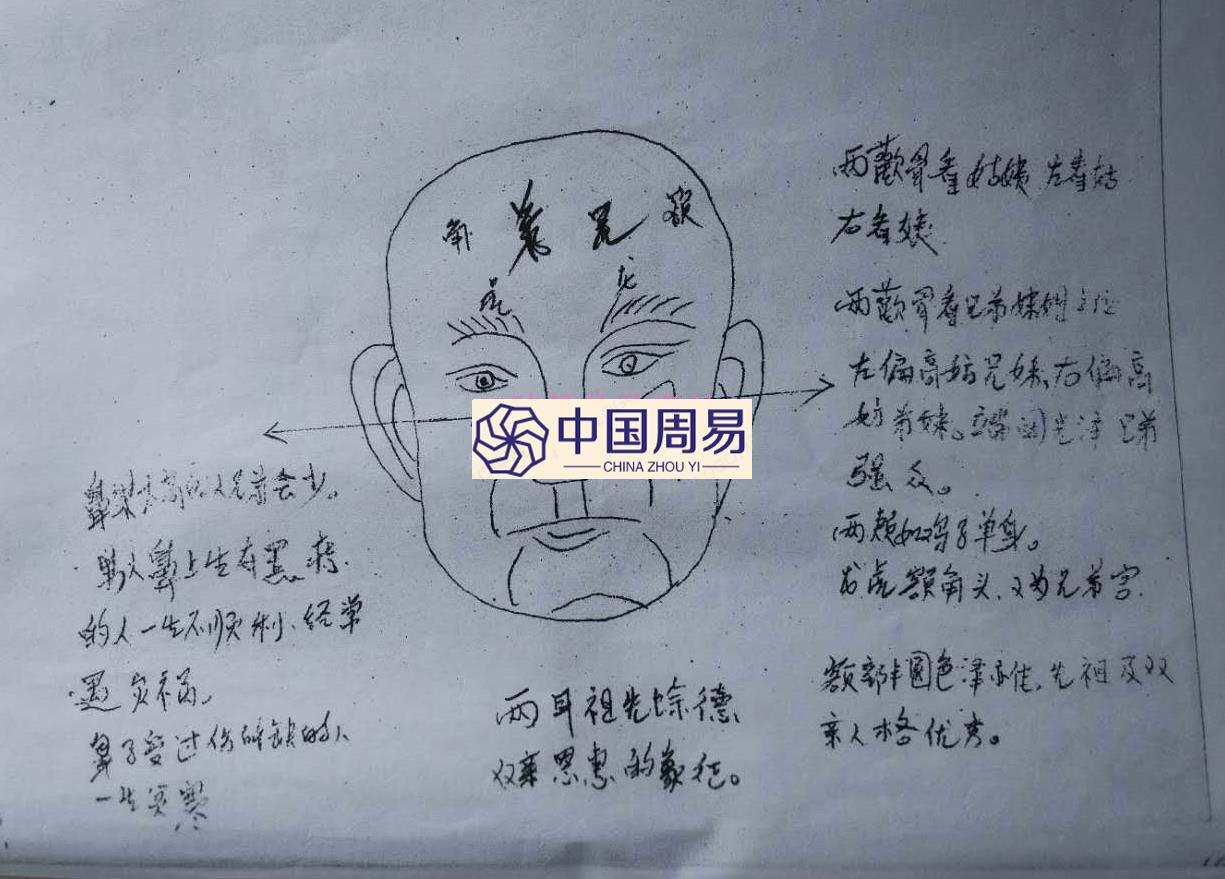 角 兄 额
虎
龙
两颧骨看姑姨 左看姑
右看姨
两颧骨看兄弟妹
左偏高妨兄妹、右偏高
妨弟妹。光泽 兄弟
强众。
两颊如鸡子单身。
龙虎额角头、又为兄弟宫
额部丰圆色泽亦佳、先祖及双
亲人格优秀。
中国周易
CHINA ZHOU YI
鼻梁高的人兄弟会少。
男人鼻上生有黑痣
的人一生不顺利、经常
遇灾祸。
鼻子受过伤或缺的人
一生
两耳祖先馀德
双亲恩惠的象征。